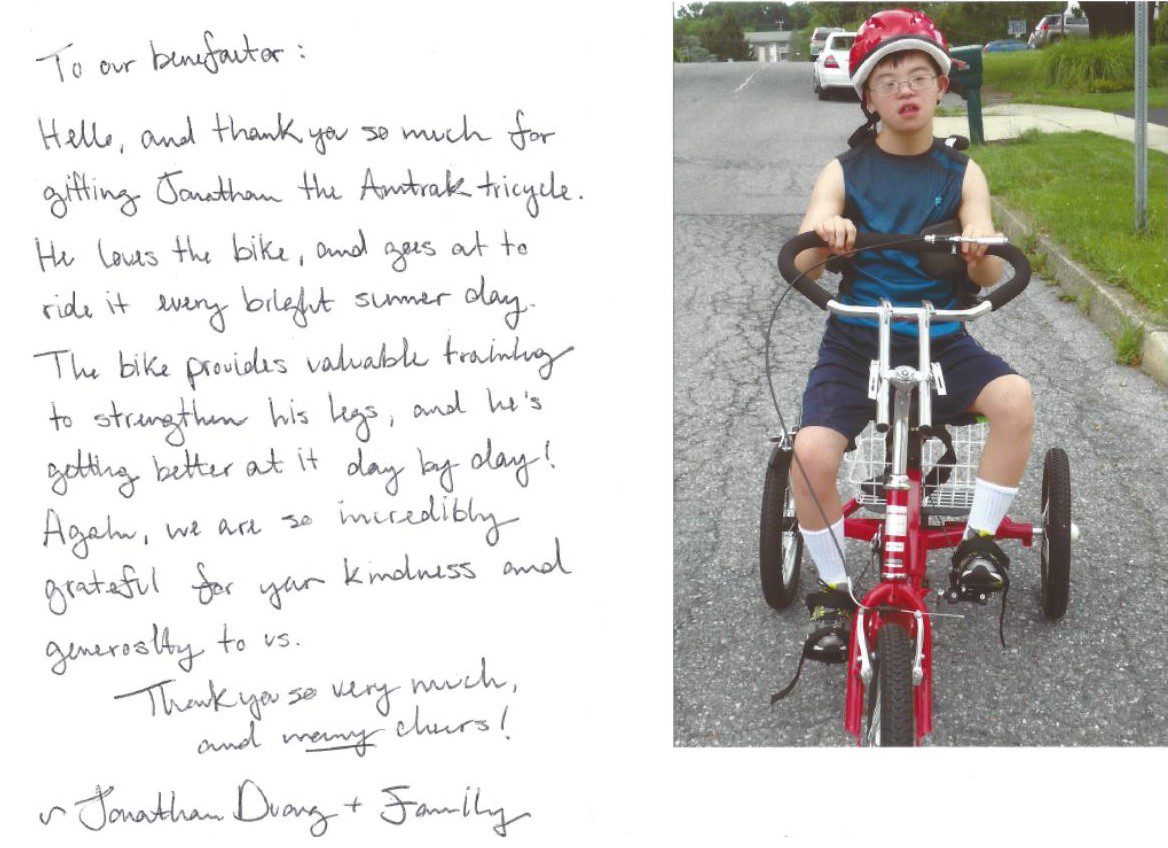 To our benefactor:
Hello, and thank you so much for
gifting Jonathan the Amtrak tricycle.
He loves the bike, and goes out to
ride it every bright summer day.
The bike provides valuable training
to strengthen his legs, and he's
getting better at it day by day!
Again, we are so incredibly
grateful for your kindness and
generosity to us.
Thank you so very much,
and many cheers!
~ Jonathan Duong + Family